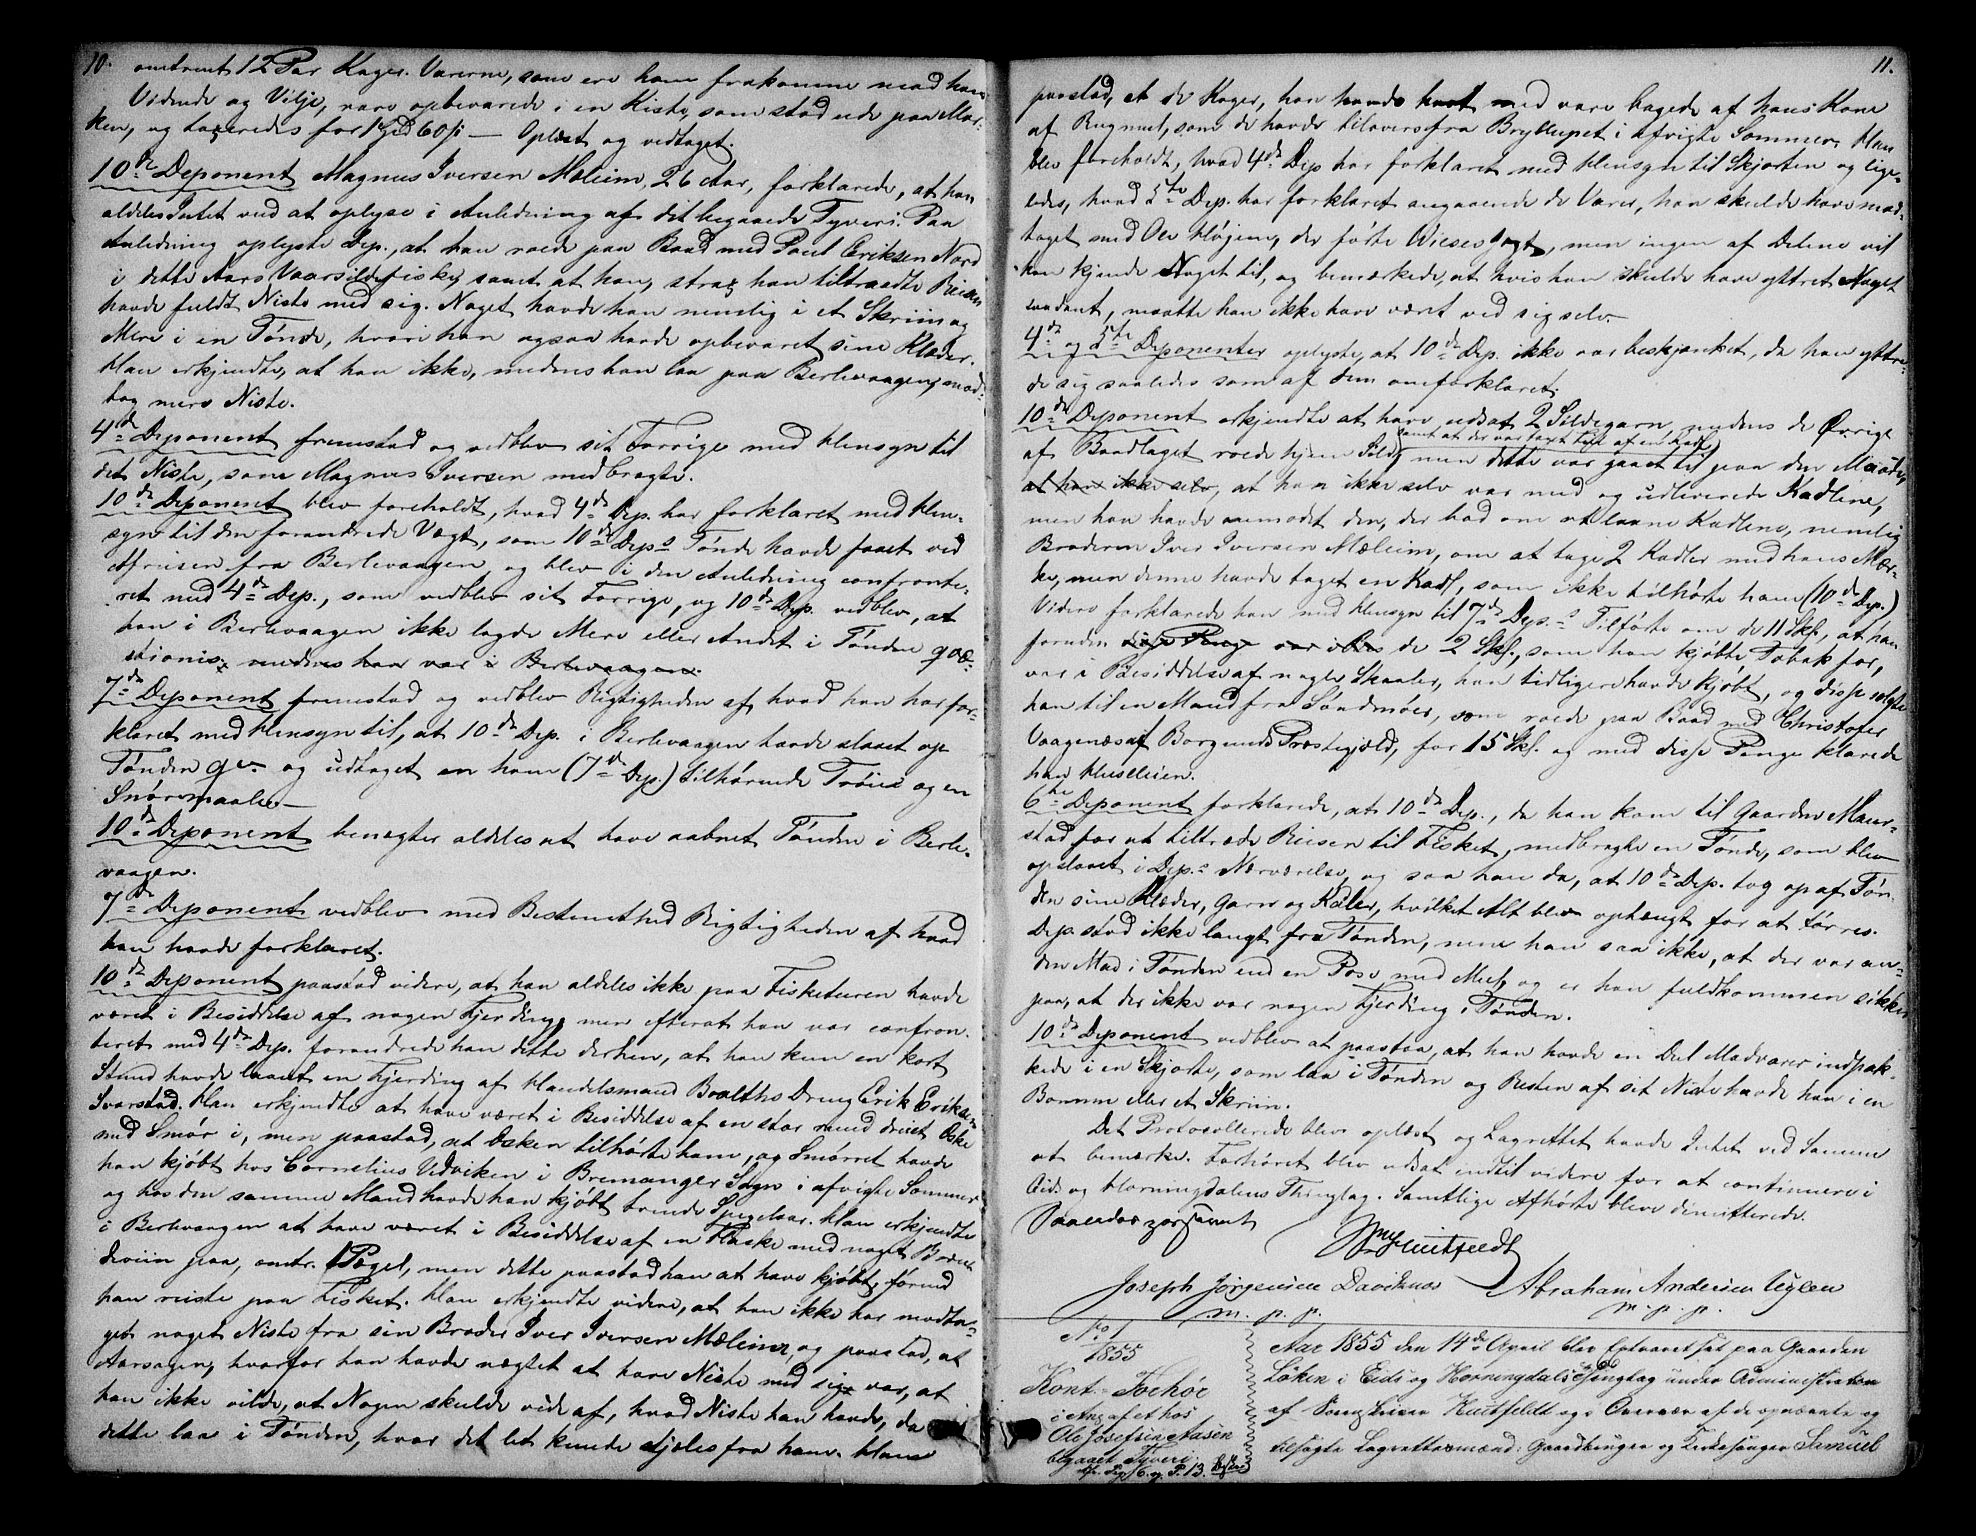 10.
omtrent 12 Par Kager. Varerne, som ere ham frakomne mod hans
Vidende og Vilje, vare opbevarede i en Kiste, som stod ude paa Mar-
ken, og taxeredes for 60 s — Oplæst og vedtaget.
10de Deponent Magnus Iversen Mæleim, 26 Aar, forklarede, at han
aldeles Intet ved at oplyse i Anledning af dit begaaede Tyveri. Paa
Anledning oplyste Dep., at han roede paa Baad med Poul Eriksen Nord
i dette Aars Vaarsildefiske, samt at han, strax han tiltraadte Reisen
havde fuldt Niste med sig. Noget havde han nemlig i et Skriin og
Mere i en Tønde, hvori han ogsaa havde opbevaret sine Klæder.
Han erkjendte, at han ikke, medens han laa paa Berlevaagen, mod-
tog mere Niste.
4de Deponent fremstod og vedblev sit Forrige med Hensyn til
det Niste, som Magnus Iversen medbragte.
10de Deponent blev foreholdt, hvad 4de Dep. har forklaret med Hen-
syn til den forandrede Vægt, som 10de Deps Tønde havde faaet ved
Afreisen fra Berlevaagen, og blev i den Anledning confronte-
ret med 4de Dep., som vedblev sit Forrige, og 10de Dep. vedblev, at
han i Berlevaagen ikke lagde Mere eller Andet i Tønden quæ-
stionis. medens han var i Berlevaagen.
7de Deponent fremstod og vedblev Rigtigheden af hvad han har for-
klaret med Hensyn til, at 10de Dep. i Berlevaagen havde slaaet op
Tønden qv. og udtaget en ham (7de Dep.) tilhørende Trøie og en
Snøremaale.
10de Deponent benægter aldeles at have aabnet Tønden i Berle-
vaagen.
7de Deponent vedblev med Bestemthed Rigtigheden af hvad
han havde forklaret.
10de Deponent paastod videre, at han aldeles ikke paa Fisketuren havde
været i Besiddelse af nogen Fjerding, men efterat han var confron-
teret med 4de Dep. forandrede han dette derhen, at han kun en kort
Stund havde laant en Fjerding af Handelsmand Dreng Erik Eriksen
Svarstad. Han erkjendte at have været i Besiddelse af en stor rund dreiet Æske
med Smør i, men paastod, at Æsken tilhørte ham, og Smørret havde
han kjøbt hos Cornelius Vedviken i Bremanger Sogn i afvigte Sommer
og hos den samme Mand havde han kjøbt tvende Spegelaar. Han erkjendte
i Berlevaagen at have været i Besiddelse af en Flaske med noget Brænde-
viin paa, omtr. 1 Pægel, men dette paastod han at have kjøbt, førend
han reiste paa Fisket. Han erkjendte videre, at han ikke har modta-
get noget Niste fra sin Broder Iver Iversen Mæleim, og paastod, at
Aarsagen, hvorfor han havde nægtet at have Niste med sig var, at
han ikke vilde, at Nogen skulde vide af, hvad Niste han havde, da
dette laa i Tønden, hvor det let kunde stjæles fra ham. Han
11.
paastod, at de Kager, han havde med vare bagede af hans Kone
af Rugmeel, som de havde tilovers fra Bryllupet i afvigte Sommer. Han
blev foreholdt, hvad 4de Dep. har forklaret med Hensyn til Skjorten og lige-
ledes, hvad 5te Dep. har forklaret angaaende de Varer, han skulde have mod-
taget med Ole Højen, der førte Wieses Jagt, men ingen af Delene vil
han kjende Noget til, og bemærkede, at hvis han skulde have yttret Noget
saadant, maatte han ikke have været ved sig selv.
4de og 5te Deponenter oplyste, at 10de Dep. ikke var beskjænket, da han yttre-
de sig saaledes som af dem omforklaret.
10de Deponent erkjendte at have udsat 2 Sildegarn, medens de Øvrige
af Baadlaget roede hjem Sild, men dette var gaaet til paa den Maade,
at han ikke selv, at han ikke selv var med og udleverede Kadlene,
men han havde anmodet den, der bad om at laane Kadlene, nemlig
Broderen Iver Iversen Mæleim, om at tage 2 Kadler med hans Mær-
ke, men denne havde taget en Kadl, som ikke tilhørte ham (10de Dep.)
Videre forklarede han med Hensyn til 7de Dep.s Tilførte om de 11 Sk., at han
foruden de 2 Sk., som han kjøbte Tobak for,
var i Besiddelse af nogle Skaaler, han tidligere havde kjøbt, og disse solgte
han til en Mand fra Søndmøer, som roede paa Baad med Christofer
Vaagenæs af Borgunds Præstegjæld, for 15 Sk. og med disse Penge klarede
han Huusleien.
6te Deponent forklarede, at 10de Dep., da han kom til Gaarden Maur-
stad for at tiltræde Reisen til Fisket, medbragte en Tønde, som blev
opslaaet i Dep.s Nærværelse, og saa han da, at 10de Dep. tog op af Tøn-
den sine Klæder, Garn og Kabler, hvilket Alt blev ophængt for at tørres.
Dep. stod ikke langt fra Tønden, men han saa ikke, at der var an-
den Mad i Tønden end en Pose med Meel, og er han fuldkommen sikker
paa, at der ikke var nogen Fjerding i Tønden.
10de Deponent vedblev at paastaa, at han havde en Del Madvarer indpak-
kede i en Skjorte, som laa i Tønden og Resten af sit Niste havde han i en
Bomme eller et Skriin.
Det Protocollerede blev oplæst og Lagrettet havde Intet ved Samme
at bemærke. Forhøret blev udsat indtil videre for at continuere i
Eids og Horningdalens Thinglag. Samtlige Afhørte bleve dimitterede.
Saaledes passeret
Huitfeldt
Joseph Jørgensen Davidsnæs
m. p. p.
Abraham Andersen
m. p. p.
No 1
1855
Kont. Forhør
i Anl. af et hos
Ole Josefsen Aasen
begaaet Tyveri
P. 13.
Aar 1855 den 14de April blev Extraret sat paa Gaarden
Løken i Eids og Horningdals Thinglag under Administration
af Huitfeldt og i Overvær af de opnævnte og
tilsagte Lagrettesmænd: Gaardbruger og Kirkesanger Samuel